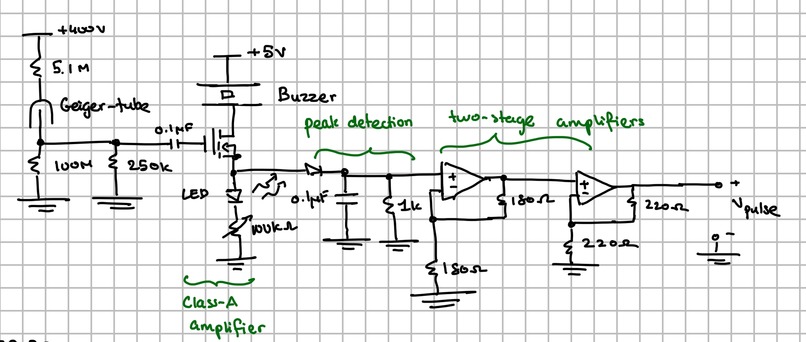 +400V
5.1M
Geiger-tube
100M
250k
0.1µF
+5V
Buzzer
LED
100kΩ
Class-A
amplifier
peak detection
0.1µF
1k
two-stage amplifiers
+
-
180Ω
180Ω
+
-
220Ω
220Ω
+
Vpulse
-